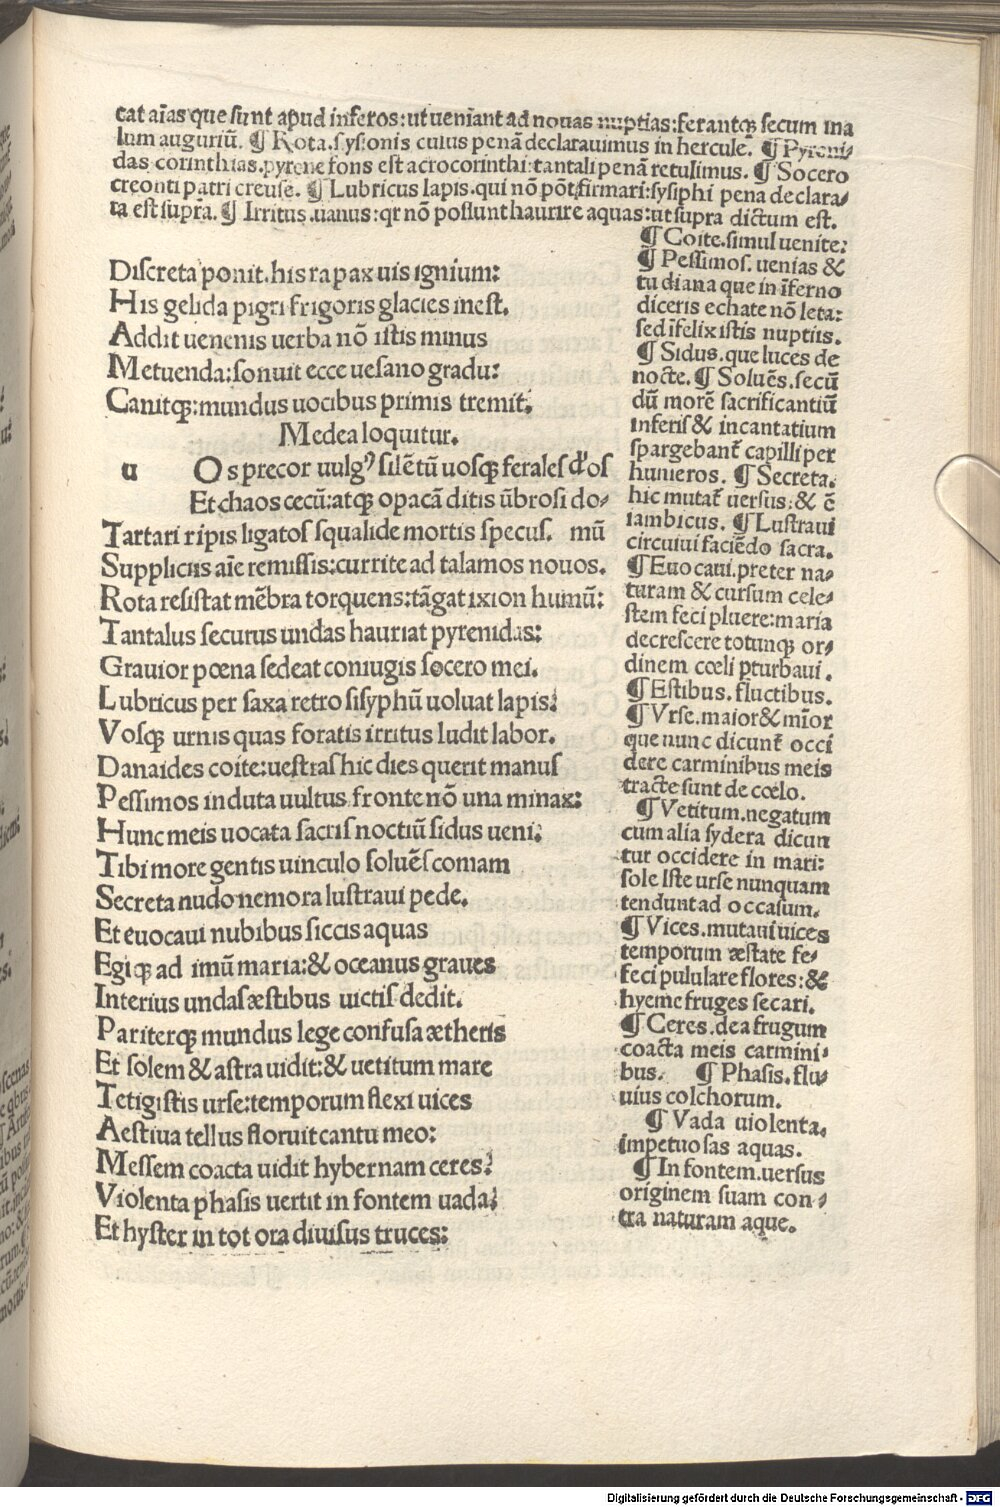 cat aīas que sunt apud inferos:ut ueniant ad nouas nuptias:ferantqꝫ secum ma
lum auguriū. ¶ Rota.sysionis cuius penā declarauimus in hercule. ¶ Pyreni-
das corinthias.pyrene fons est acrocorinthi:tantali penā retulimus. ¶ Socero
creonti patri creuse. ¶ Lubricus lapis.qui nō pōt firmari:sysiphi pena declara-
ta est supra. ¶ Irritus.uanus:qr nō possunt haurire aquas:ut supra dictum est.
Discreta ponit.his rapax uis ignium:
His gelida pigri frigoris glacies inest.
Addit uenenis uerba nō istis minus
Metuenda:sonuit ecce uesano gradu:
Canitqꝫ:mundus uocibus primis tremit.
Medea loquitur.
u Os precor uulgꝰ silētū uosqꝫ ferales d'os
Et chaos cecū:atqꝫ opacā ditis ūbrosi do-
Tartari ripis ligatos squalide mortis specus. mū
Suppliciis aīe remissis:currite ad talamos nouos.
Rota resistat mēbra torquens:tāgat ixion humū:
Tantalus securus undas hauriat pyrenidas:
Grauior pœna sedeat coniugis socero mei.
Lubricus per saxa retro sisyphū uoluat lapis:
Vosqꝫ urnis quas foratis irritus ludit labor.
Danaides coite:uestras hic dies querit manus
Pessimos induta uultus fronte nō una minax:
Hunc meis uocata sacris noctiū sidus ueni:
Tibi more gentis uinculo soluēs comam
Secreta nudo nemora lustraui pede.
Et euocaui nubibus siccis aquas
Egiqꝫ ad imū maria:& oceanus graues
Interius undas æstibus uictis dedit.
Pariterqꝫ mundus lege confusa ætheris
Et solem & astra uidit:& uetitum mare
Tetigistis urse:temporum flexi uices
Aestiua tellus floruit cantu meo:
Messem coacta uidit hybernam ceres:
Violenta phasis uertit in fontem uada:
Et hyster in tot ora diuisus truces:
¶ Coite.simul uenite:
¶ Pessimos.uenias &
tu diana que in īferno
diceris echate nō leta:
sed īfelix istis nuptiis.
¶ Sidus.que luces de
nocte. ¶ Soluēs.secū
dū morē sacrificantiū
inferis & incantatium
spargebant̄ capilli per
humeros. ¶ Secreta.
hic mutat̄ uersus:& ē
iambicus. ¶ Lustraui
circuiui faciēdo sacra.
¶ Euocaui.preter na-
turam & cursum cele-
stem feci pluere:maria
decrescere totunqꝫ or-
dinem cœli pturbaui.
¶ Estibus.fluctibus.
¶ Vrse.maior & mīor
que nunc dicunt̄ occi
dere carminibus meis
tracte sunt de cœlo.
¶ Vetitum.negatum
cum alia sydera dicun
tur occidere in mari:
sole iste urse nunquam
tendunt ad occasum.
¶ Vices.mutaui uices
temporum æstate fe-
feci pululare flores:&
hyeme fruges secari.
¶ Ceres.dea frugum
coacta meis carmini-
bus. ¶ Phasis.flu-
uius colchorum.
¶ Vada uiolenta.
impetuosas aquas.
¶ In fontem.uersus
originem suam con-
tra naturam aque.
Digitalisierung gefördert durch die Deutsche Forschungsgemeinschaft - DFG